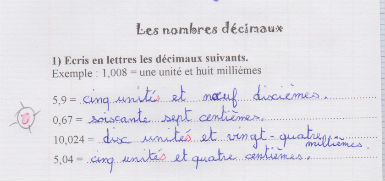 Les nombres décimaux
1) Ecris en lettres les décimaux suivants.
Exemple : 1,008 = une unité et huit millièmes
5,9 = cinq unités et nœuf dixièmes.
0,67 = soiscante sept centièmes.
10,024 = disc unités et vingt-quatre millièmes.
5,04 = cinq unités et quatre centièmes.